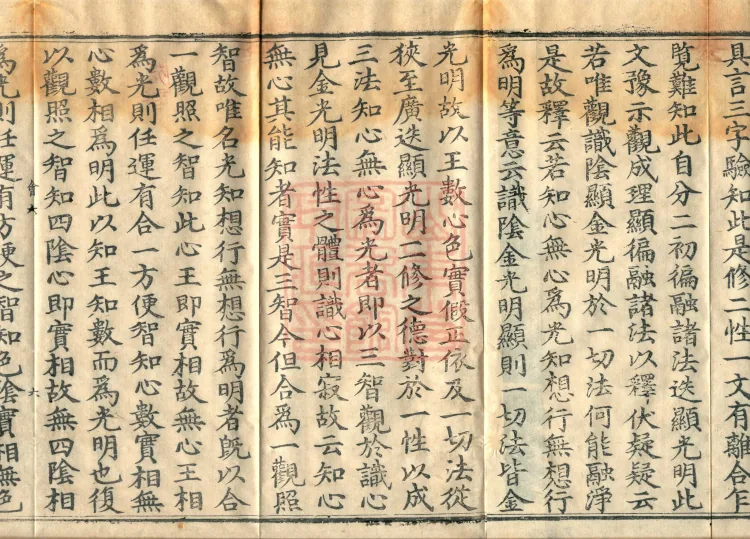 具言三字驗知此是修二性一文有離合乍
覧難知此自分二初徧融諸法迭顯光明此
文豫示觀成理顯徧融諸法以釋伏疑疑云
若唯觀識陰顯金光明於一切法何能融淨
是故釋云若知心無心為光知想行無想行
為明等意云識陰金光明顯則一切法皆金
光明故以王數心色實假正依及一切法從
狹至廣迭顯光明二修之德對於一性以成
三法知心無心為光者即以三智觀於識心
見金光明法性之體則識心相寂故云知心
無心其能知者實是三智今但合為一觀照
智故唯名光知想行無想行為明者旣以合
一觀照之智知此心王即實相故無心王相
為光則任運有合一方便智知心數實相無
心數相為明此以知王知數而為光明也復
以觀照之智知四陰心即實相故無四陰相
為光則任運有方便之智知色陰實相無色
六